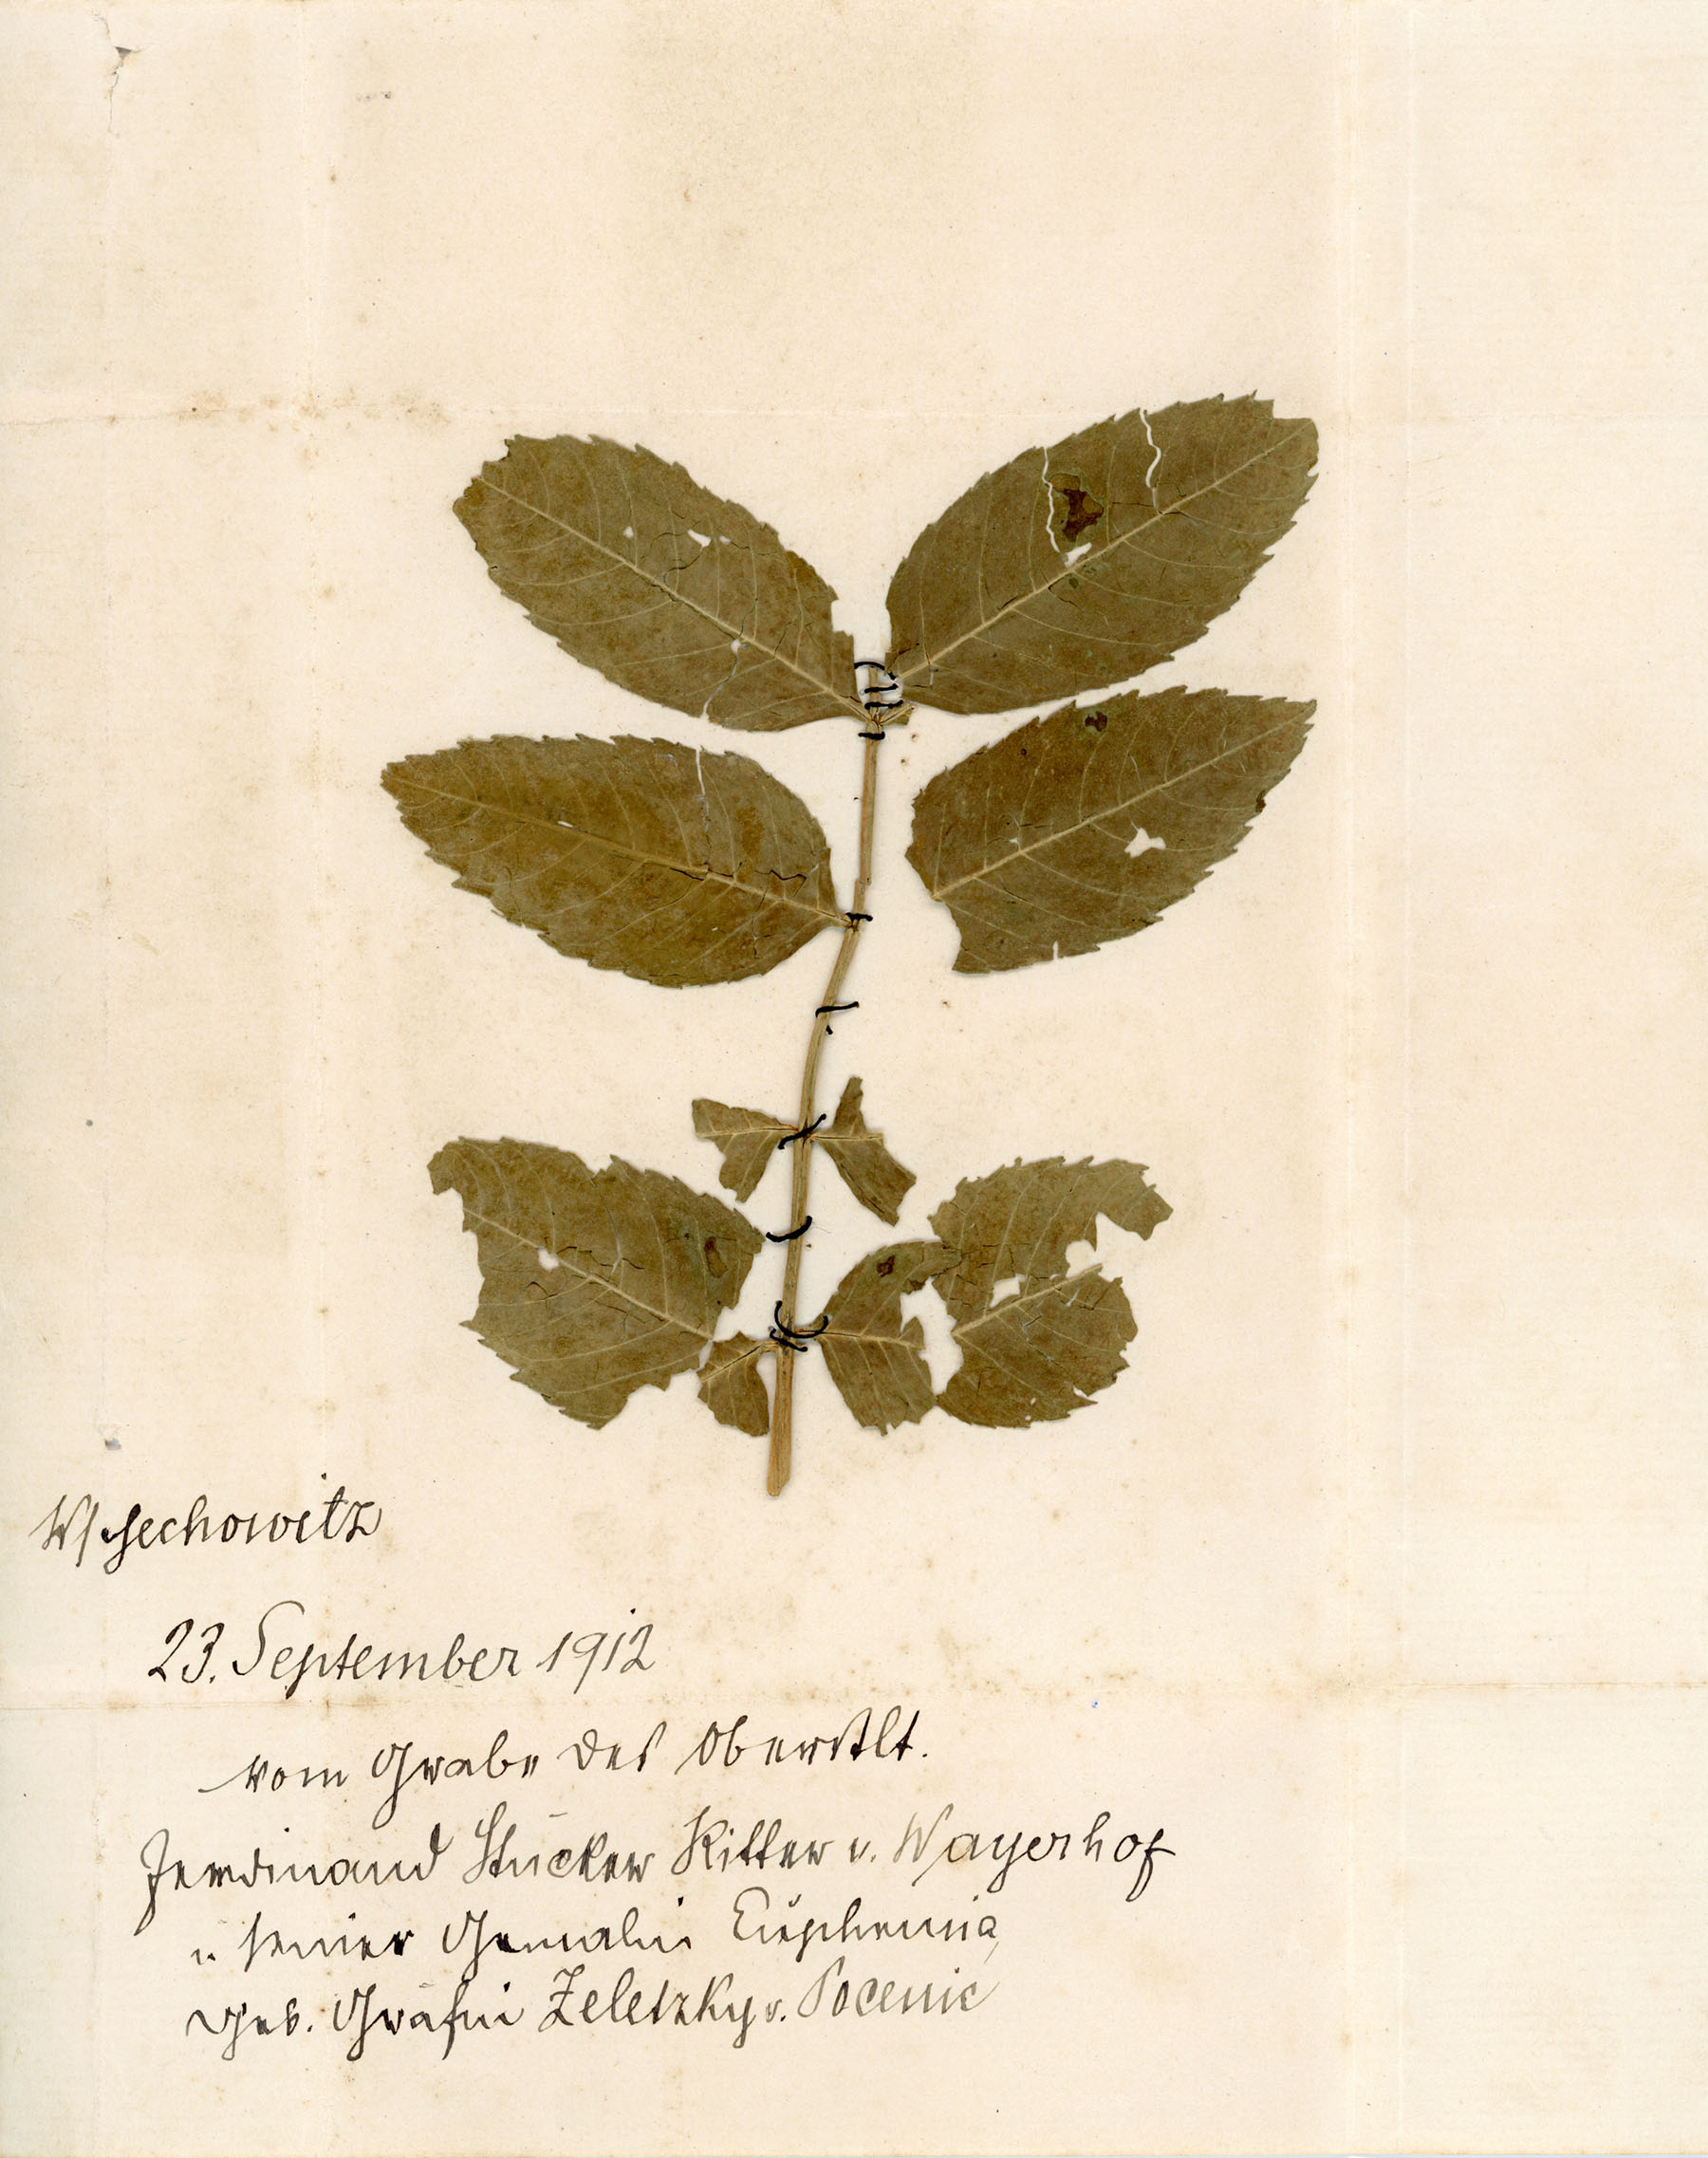 Wschechowitz
23. September 1912
vom Grabe des Oberstlt.
Ferdinand Stücker Ritter v. Wayerhof
u. seiner Gemalin Euphemia,
geb. Gräfin Zeletzky v. Pocenic